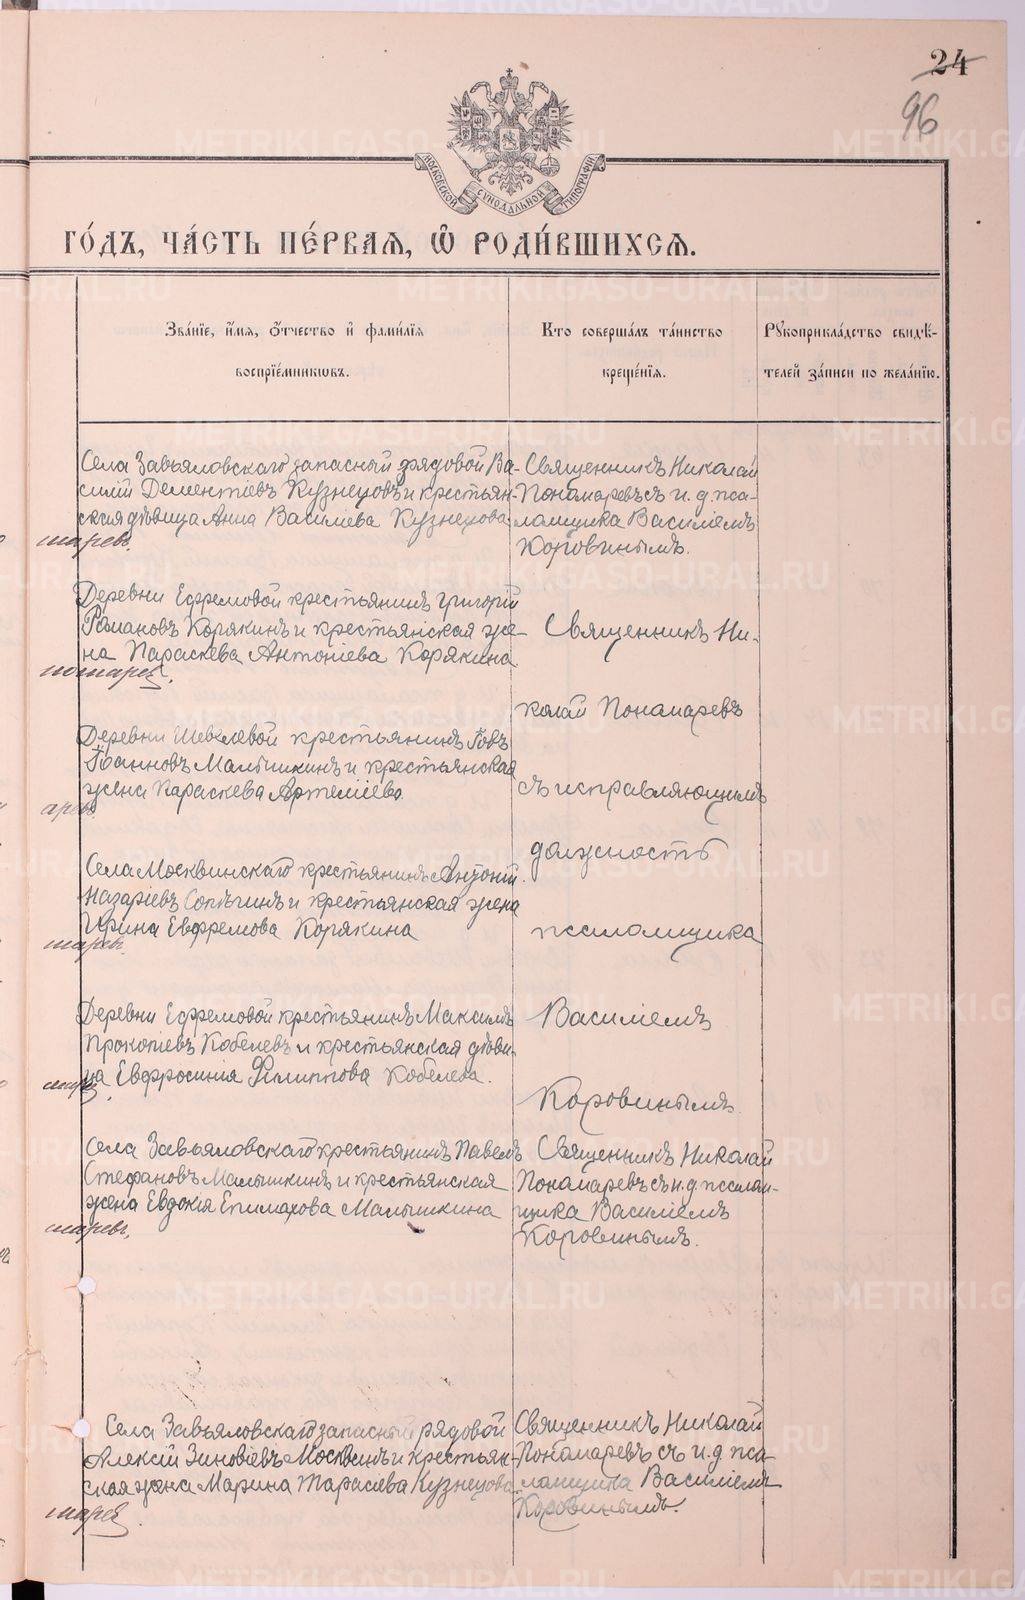 24
96
МОСКОВСКОЙ СѴНОДАЛЬНОЙ ТИПОГРАФІИ
ГО́ДЪ, ЧА́СТЬ ПЕ́РВАѦ, Ѿ РОДИ́ВШИХСѦ.
Зва́нїе, и҆́мѧ, ѻ҆́тчество и҆ фами́лїѧ
воспрїе́мникѡвъ.
Кто соверша́лъ та́инство
креще́нїѧ.
Рꙋкоприкла́дство свидѣ́-
телей за́писи по жела́нїю.
Села Завьяловскаго запасный рядовой Ва-
силій Дементіевъ Кузнецовъ и крестьян-
ская дѣвица Анна Василіева Кузнецова.
Священникъ Николай
Пономаревъ съ и. д. пса-
ломщика Василіемъ
Коровинымъ.
Деревни Ефремовой крестьянинъ Григорій
Романовъ Корякинъ и крестьянская же-
на Параскева Антоніева Корякина.
Деревни Шевелевой крестьянинъ Іовъ
Іоанновъ Малышкинъ и крестьянская
жена Параскева Артеміева.
Села Москвинскаго крестьянинъ Антоній
Назаріевъ Сопѣгинъ и крестьянская жена
Ирина Евфремова Корякина
Деревни Ефремовой крестьянинъ Максимъ
Прокопіевъ Кобелевъ и крестьянская дѣви-
ца Евфросинія Филиппова Кобелева.
Священникъ Ни-
колай Пономаревъ
съ исправляющимъ
должность
псаломщика
Василіемъ
Коровинымъ
Села Завьяловскаго крестьянинъ Павелъ
Стефановъ Малышкинъ и крестьянская
жена Евдокія Епимахова Малышкина
Священникъ Николай
Пономаревъ съ и. д. псалом-
щика Василіемъ
Коровинымъ.
Села Завьяловскаго запасный рядовой
Алексій Зиновіевъ Москвинъ и крестьян-
ская жена Марина Тарасіева Кузнецова.
Священникъ Николай
Пономаревъ съ и. д. пса-
ломщика Василіемъ
Коровинымъ.
METRIKI.GASO-URAL.RU